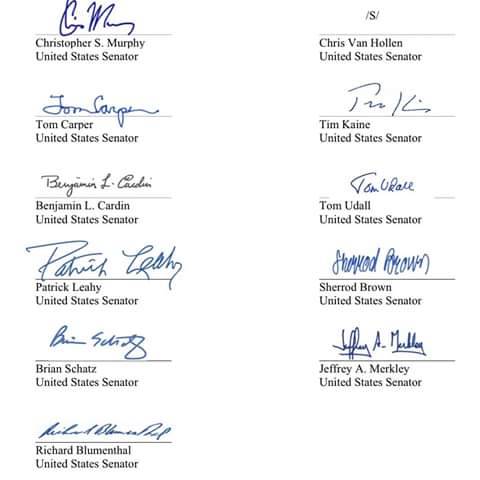 Chris Murphy
/S/
Christopher S. Murphy
Chris Van Hollen
United States Senator
United States Senator
Tom Carper
Tim Kaine
Tom Carper
Tim Kaine
United States Senator
United States Senator
Benjamin L. Cardin
Tom Udall
Benjamin L. Cardin
Tom Udall
United States Senator
United States Senator
Patrick Leahy
Sherrod Brown
Patrick Leahy
Sherrod Brown
United States Senator
United States Senator
Brian Schatz
Jeffrey A. Merkley
Brian Schatz
Jeffrey A. Merkley
United States Senator
United States Senator
Richard Blumenthal
Richard Blumenthal
United States Senator